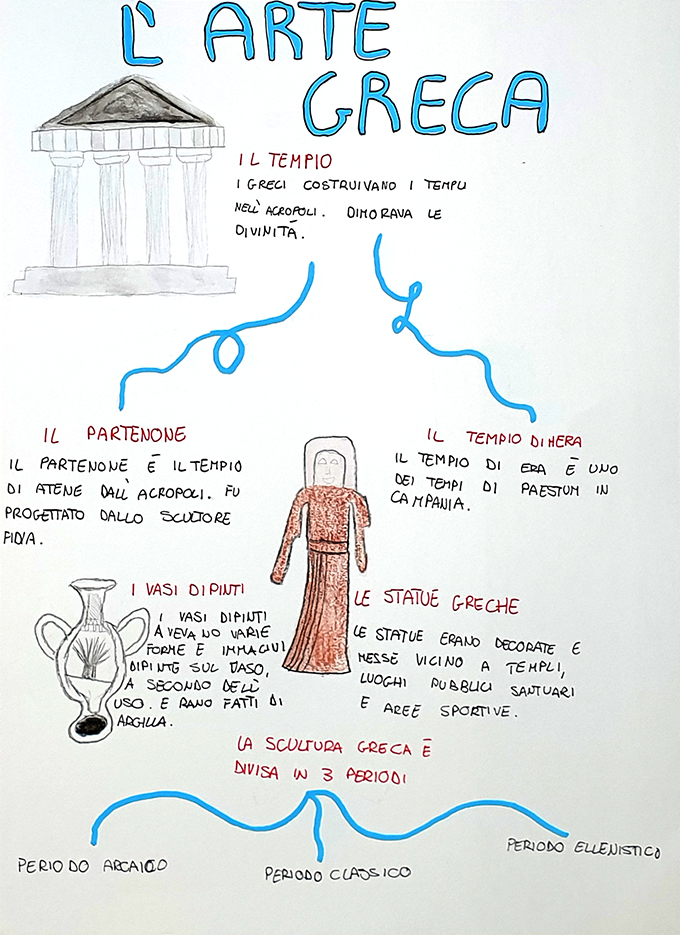 L'ARTE
GRECA
IL TEMPIO
I GRECI COSTRUIVANO I TEMPLI
NELL'ACROPOLI. DIMORAVA LE
DIVINITÀ.
IL PARTENONE
IL PARTENONE È IL TEMPIO
DI ATENE DALL'ACROPOLI. FU
PROGETTATO DALLO SCULTORE
FIDIA.
IL TEMPIO DI HERA
IL TEMPIO DI ERA È UNO
DEI TEMPI DI PAESTUM IN
CAMPANIA.
I VASI DIPINTI
I VASI DIPINTI
AVEVANO VARIE
FORME E IMMAGINI
DIPINTE SUL VASO,
A SECONDO DELL'
USO. ERANO FATTI DI
ARGILLA.
LE STATUE GRECHE
LE STATUE ERANO DECORATE E
MESSE VICINO A TEMPLI,
LUOGHI PUBBLICI SANTUARI
E AREE SPORTIVE.
LA SCULTURA GRECA È
DIVISA IN 3 PERIODI
PERIODO ARCAICO
PERIODO CLASSICO
PERIODO ELLENISTICO